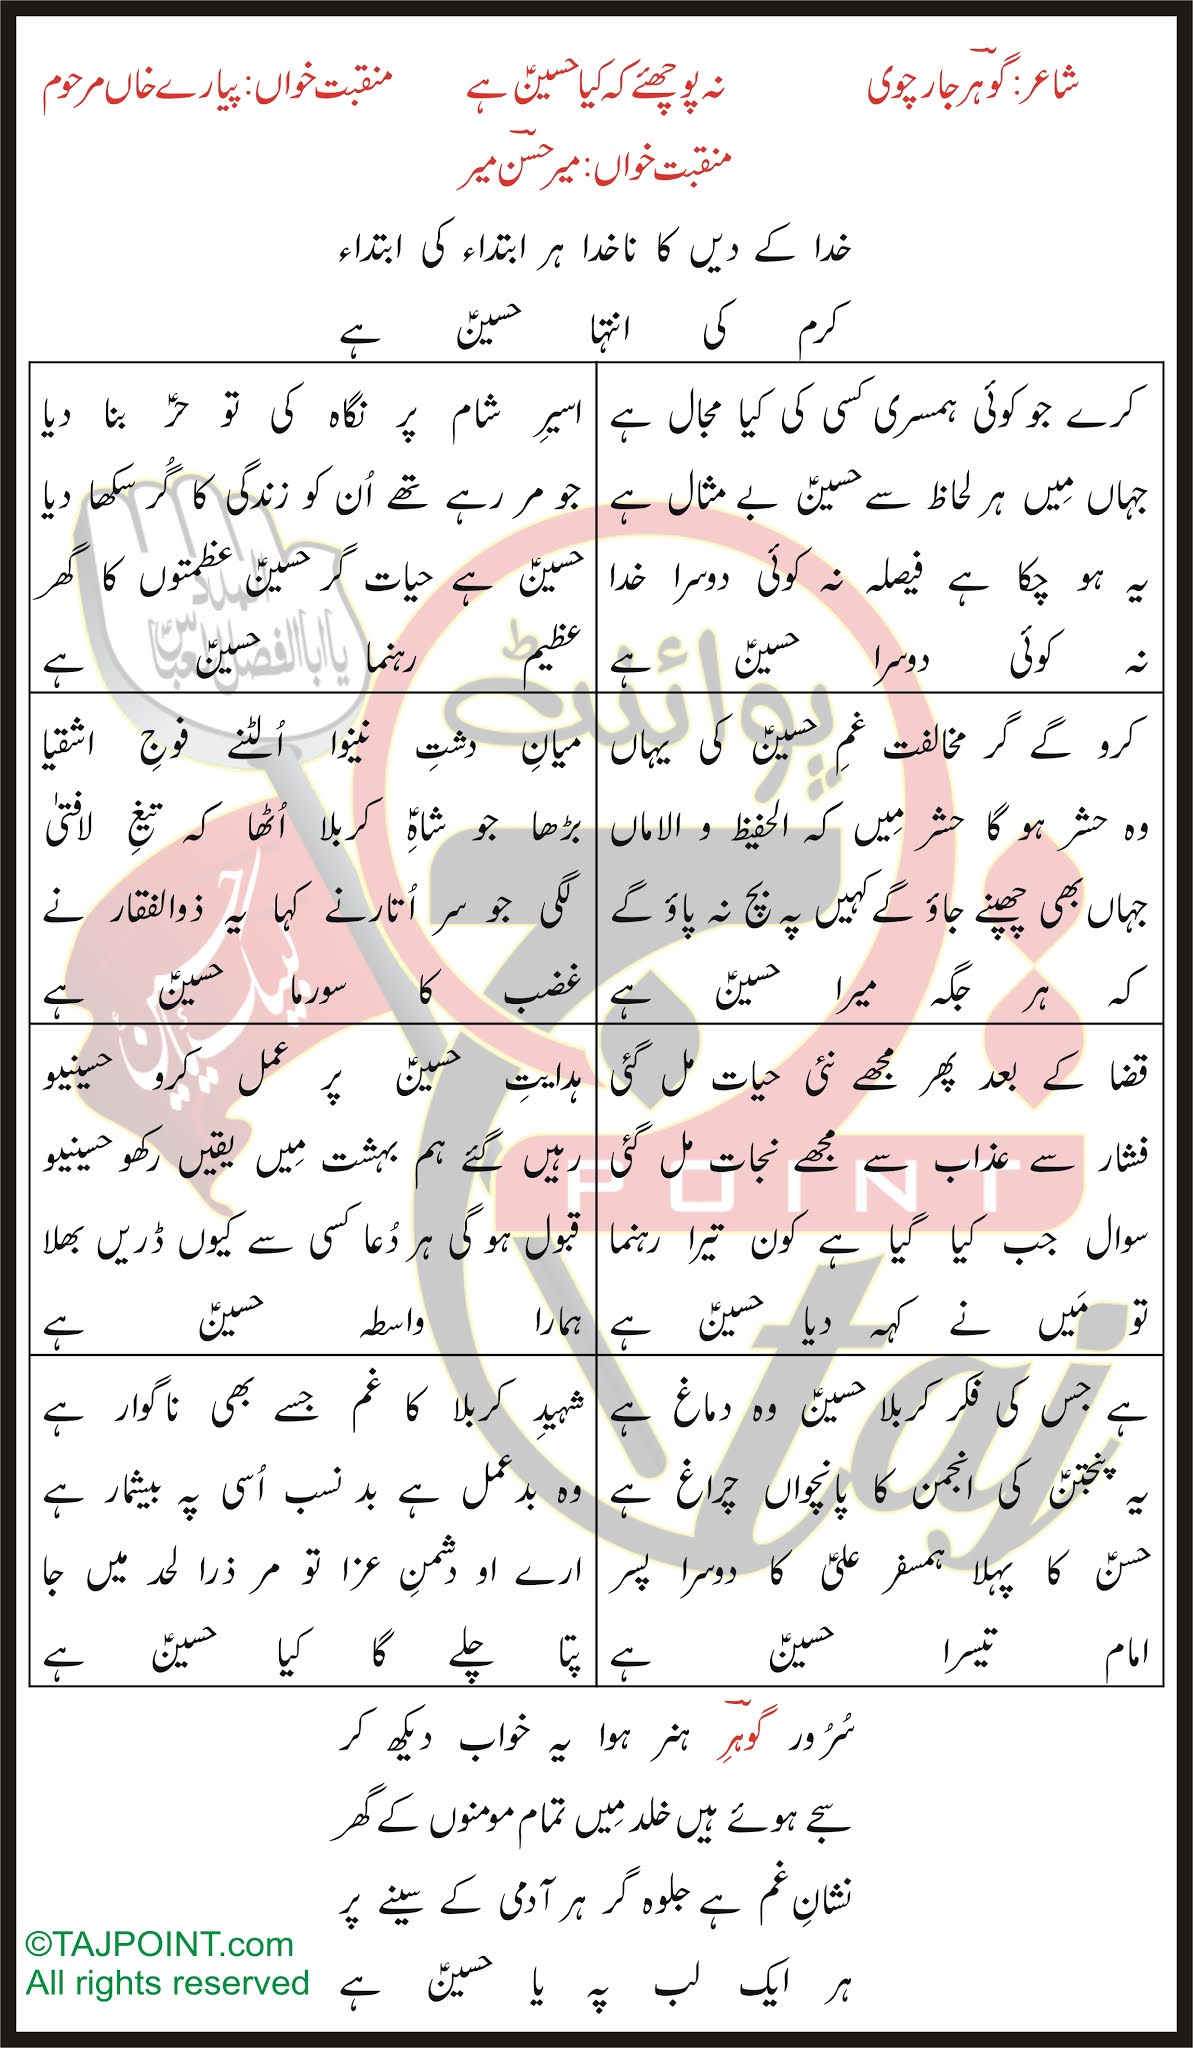 شاعر: گوہرؔ جارچوی
نہ پوچھئے کہ کیا حسینؑ ہے
منقبت خواں: پیارے خاں مرحوم
منقبت خواں: میر حسنؔ میر
خدا کے دیں کا ناخدا ہر ابتداء کی ابتداء
کرم کی انتہا حسینؑ ہے
کرے جو کوئی ہمسری کسی کی کیا مجال ہے
جہاں مِیں ہر لحاظ سے حسینؑ بے مثال ہے
یہ ہو چکا ہے فیصلہ نہ کوئی دوسرا خدا
نہ کوئی دوسرا حسینؑ ہے
اسیرِ شام پر نگاہ کی تو حرؑ بنا دیا
جو مر رہے تھے اُن کو زندگی کا گُر سکھا دیا
حسینؑ ہے حیات گر حسینؑ عظمتوں کا گھر
عظیم رہنما حسینؑ ہے
کرو گے گر مخالفت غمِ حسینؑ کی یہاں
وہ حشر ہو گا حشر مِیں کہ الحفیظ و الاماں
جہاں بھی چھپنے جاؤ گے کہیں پہ بچ نہ پاؤ گے
کہ ہر جگہ میرا حسینؑ ہے
میانِ دشتِ نینوا اُلٹنے فوجِ اشقیا
بڑھا جو شاہِؑ کربلا اُٹھا کہ تیغِ لافتیٰ
لگی جو سر اُتارنے کہا یہ ذوالفقار نے
غضب کا سورما حسینؑ ہے
قضا کے بعد پھر مجھے نئی حیات مل گئی
فشار سے عذاب سے مجھے نجات مل گئی
سوال جب کیا گیا ہے کون تیرا رہنما
تو مَیں نے کہہ دیا حسینؑ ہے
ہدایتِ حسینؑ پر عمل کرو حسینیو
رہیں گئے ہم بہشت مِیں یقیں رکھو حسینیو
قبول ہو گی ہر دُعا کسی سے کیوں ڈریں بھلا
ہمارا واسطہ حسینؑ ہے
ہے جس کی فکر کربلا حسینؑ وہ دماغ ہے
یہ پنجتنؑ کی انجمن کا پانچواں چراغ ہے
حسنؑ کا پہلا ہمسفر علیؑ کا دوسرا پسر
امام تیسرا حسینؑ ہے
شہیدِ کربلا کا غم جسے بھی ناگوار ہے
وہ بدعمل ہے بد نسب اُسی پہ بیشمار ہے
ارے او دشمنِ عزا تو مر ذرا لحد میں جا
پتا چلے گا کیا حسینؑ ہے
سُرُور گوہرِؔ ہنر ہوا یہ خواب دیکھ کر
سجے ہوئے ہیں خلد مِیں تمام مومنوں کے گھر
نشانِ غم ہے جلوہ گر ہر آدمی کے سینے پر
ہر ایک لب پہ یا حسینؑ ہے
©TAJPOINT.com
All rights reserved
پوائنٹ
POINT
taj
یا ابا الفضل العباس
لبیک یا حسین